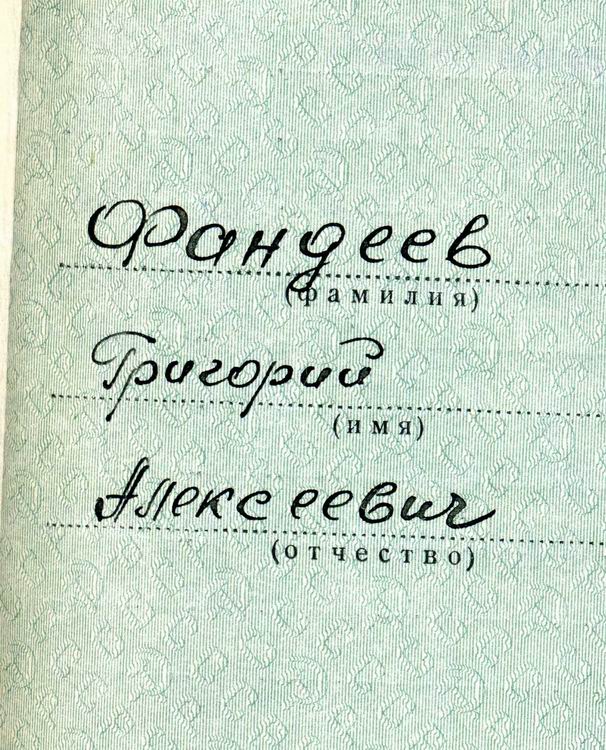 Фандеев
(фамилия)
Григорий
(имя)
Алексеевич
(отчество)